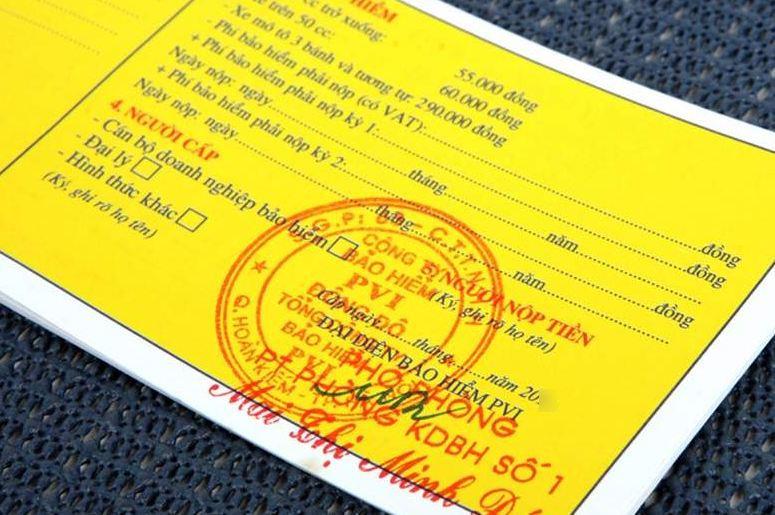 HIỂM
cc trở xuống: 55.000 đồng
trên 50 cc: 60.000 đồng
- Xe mô tô 3 bánh và tương tự: 290.000 đồng
- Phí bảo hiểm phải nộp (có VAT):..........đồng
+ Phí bảo hiểm phải nộp kỳ 1:..........đồng
Ngày nộp: ngày..........tháng..........năm..........
+ Phí bảo hiểm phải nộp kỳ 2:..........đồng
Ngày nộp: ngày..........tháng..........năm..........
4. NGƯỜI CẤP
- Cán bộ doanh nghiệp bảo hiểm □
- Đại lý □
- Hình thức khác □
(Ký, ghi rõ họ tên)
5. NGƯỜI NỘP TIỀN
(Ký, ghi rõ họ tên)
Cấp ngày..........tháng..........năm 20
ĐẠI DIỆN BẢO HIỂM PVI
CÔNG TY
BẢO HIỂM
PVI
ĐÔNG ĐÔ
TỔNG
BẢO HIỂM
PVI
Q.HOÀN KIẾM
PHÓ PHÒNG
PT PHÒNG KDBH SỐ 1
Mai Thị Minh